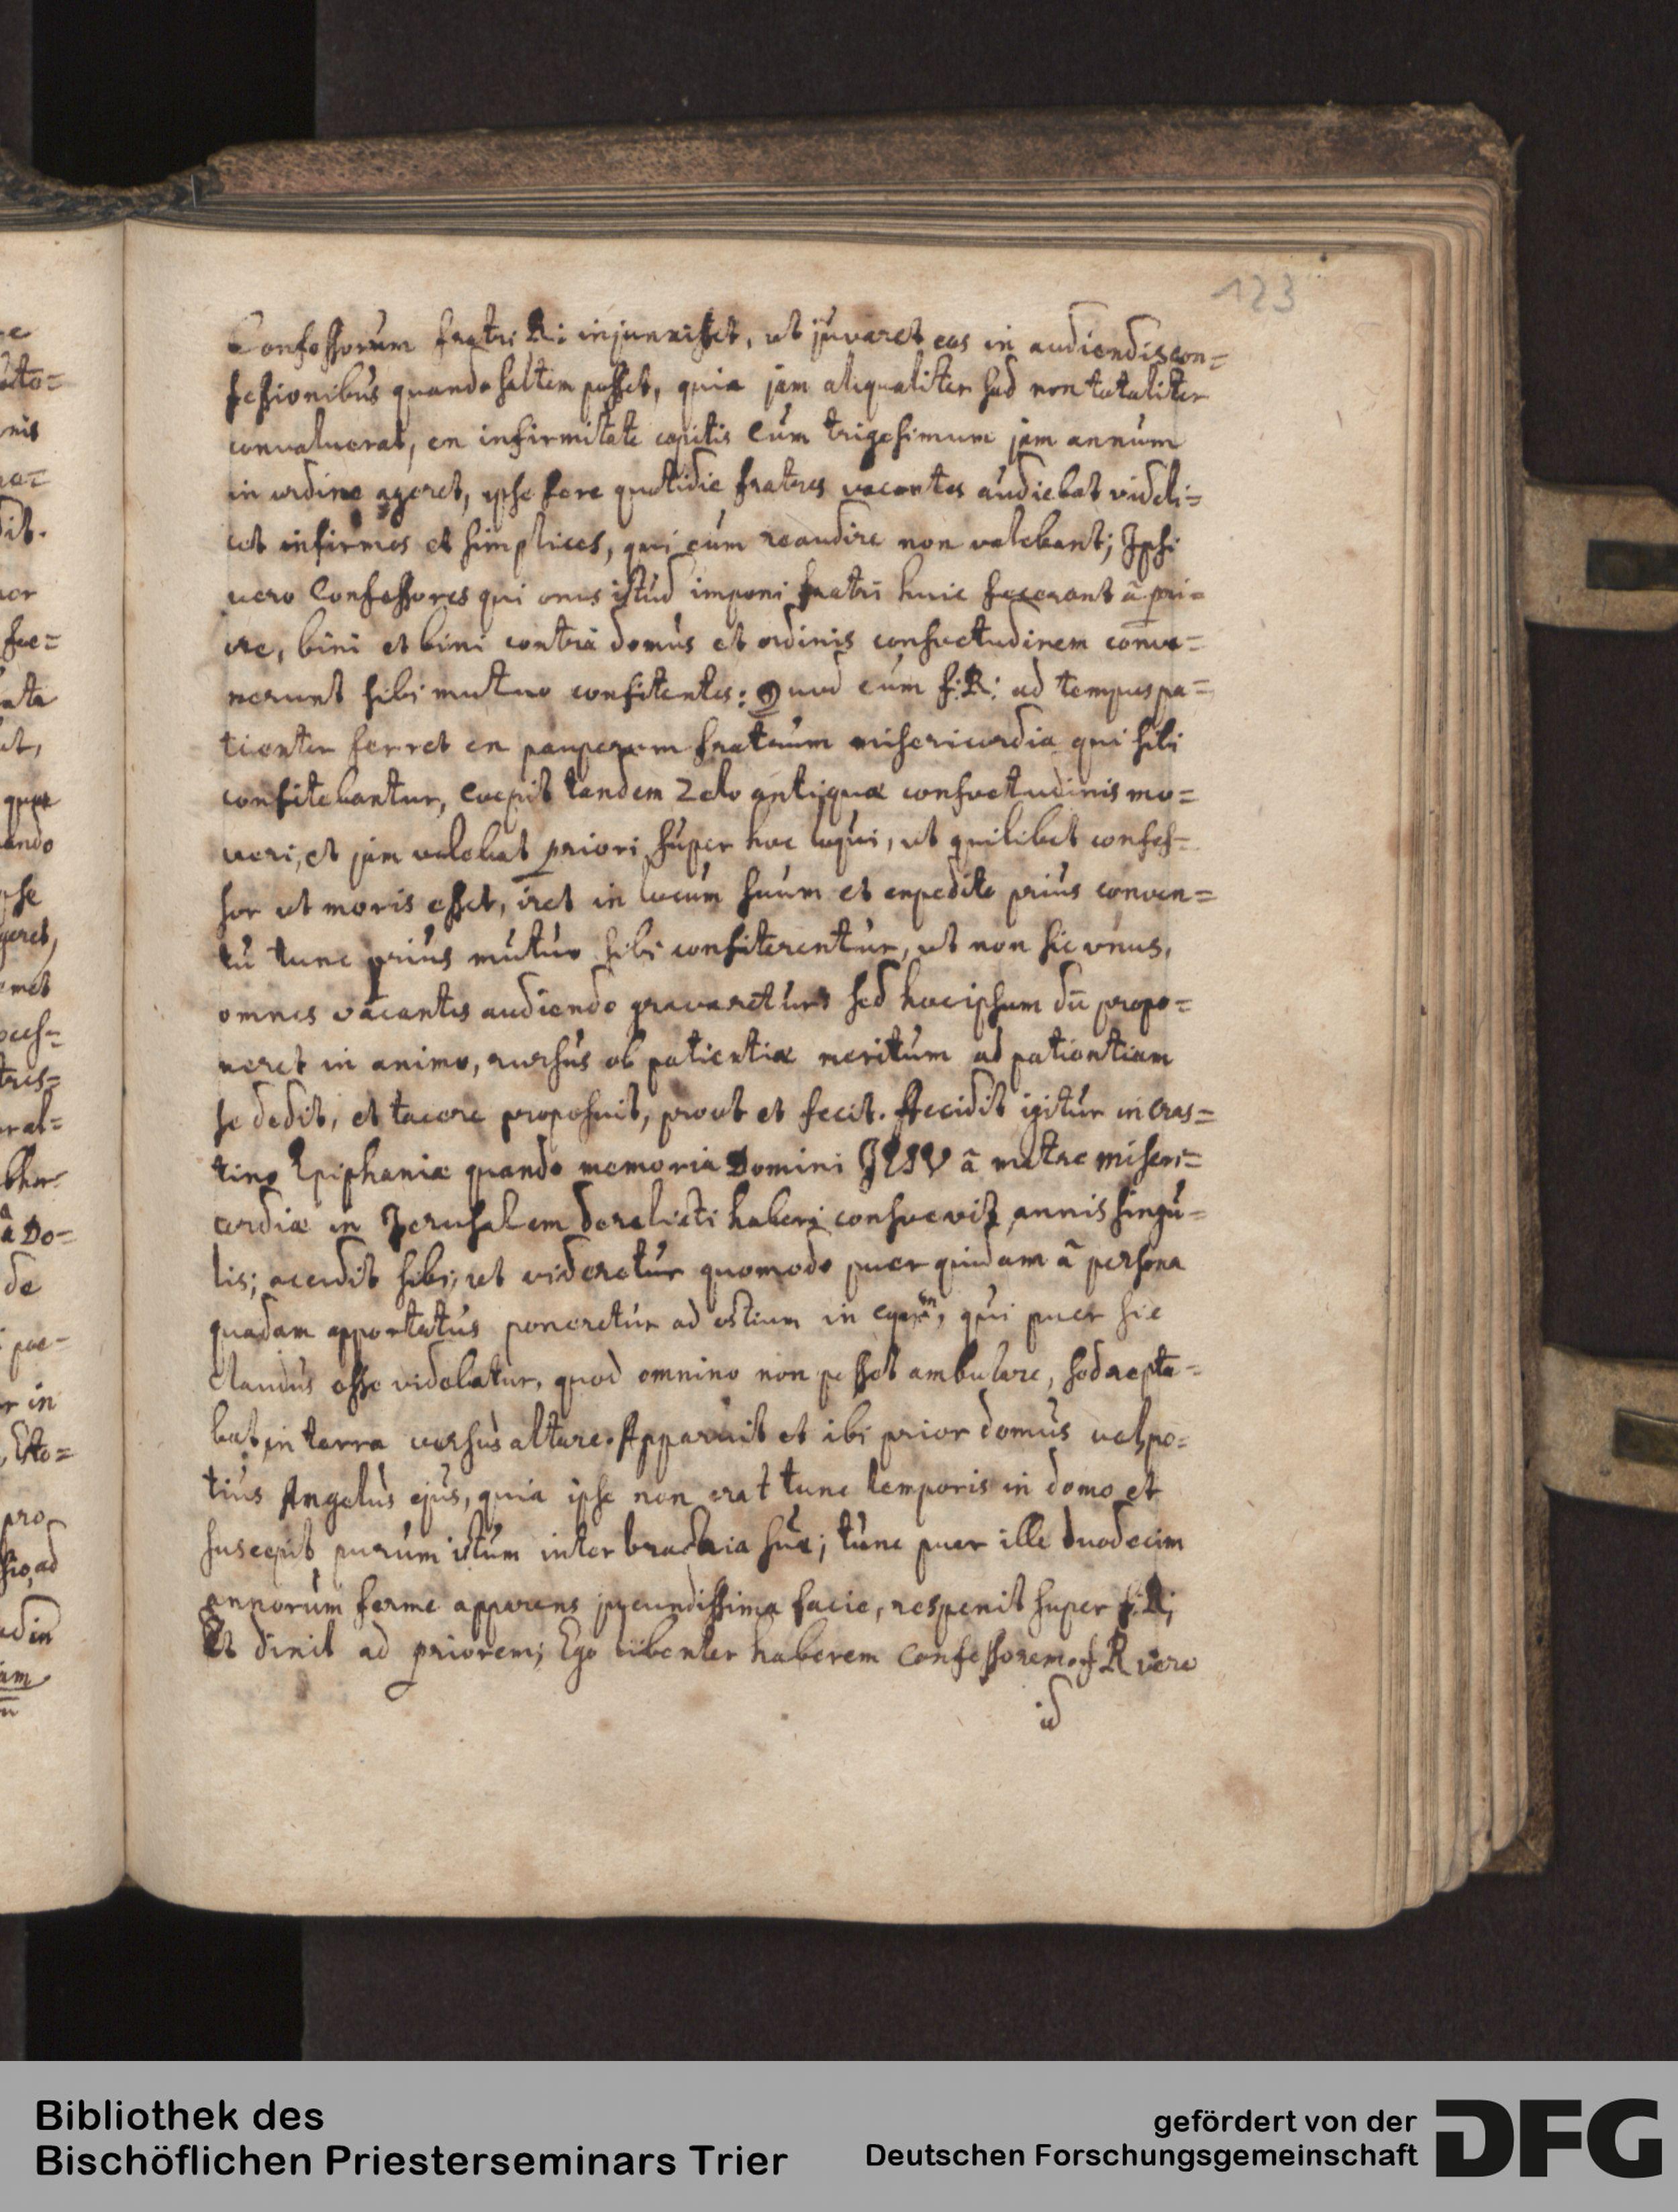 123
Confessorum fratri R: injunxisset, ut juvaret eos in audiendis con=
fessionibus quando saltem posset, quia jam aliqualiter sed non totaliter
convaluerat, ex infirmitate capitis Cum trigesimum jam annum
in ordine ageret, ipse fere quotidie fratres vacantes audiebat videli=
cet infirmos et simplices, qui eum reaudire non valebant; Ipsi
vero Confessores qui onus istud imponi fratri huic fecerant ã pri=
ore, bini et bini contra domus et ordinis consuetudinem conve=
nerunt sibi mutuo confitentes: Quod cum f: R: ad tempus pa=
tienter ferret ex pauperum fratrum misericordia qui sibi
confitebantur, Coepit tandem Zelo antiquae consuetudinis mo=
veri, et jam volebat priori super hoc loqui, ut quilibet confes=
sor ut moris esset, iret in locum suum et expedito prius conven=
tu tunc prius mutuo sibi confiterentur, ut non sic unus,
omnes vacantes audiendo gravaretur: sed hoc ipsum dũ propo=
neret in animo, rursus ob patientiae meritum ad patientiam
se dedit, et tacere proposuit, prout et fecit. Accidit igitur in Cras=
tino Epiphaniae quando memoria Domini JESV ã matre miseri=
cordiae in Jerusalem derelicti haberi consuevit annis singu=
lis; accidit sibi, ut videretur quomodo puer quidam ã persona
quadam apportatus poneretur ad ostium in , qui puer sic
Claudus esse videbatur, quod omnino non posset ambulare, sed repta=
bat in terra versus altare. Apparuit et ibi prior domus vel po=
tius Angelus ejus, quia ipse non erat tunc temporis in domo et
suscepit purum istum inter brachia sua; tunc puer ille duodecim
annorum ferme apparens jucundissima facie, respexit super f: R;
Et dixit ad priorem; Ego libenter haberem Confessorem. f R vero
id
Bibliothek des
Bischöflichen Priesterseminars Trier
gefördert von der
Deutschen Forschungsgemeinschaft
DFG